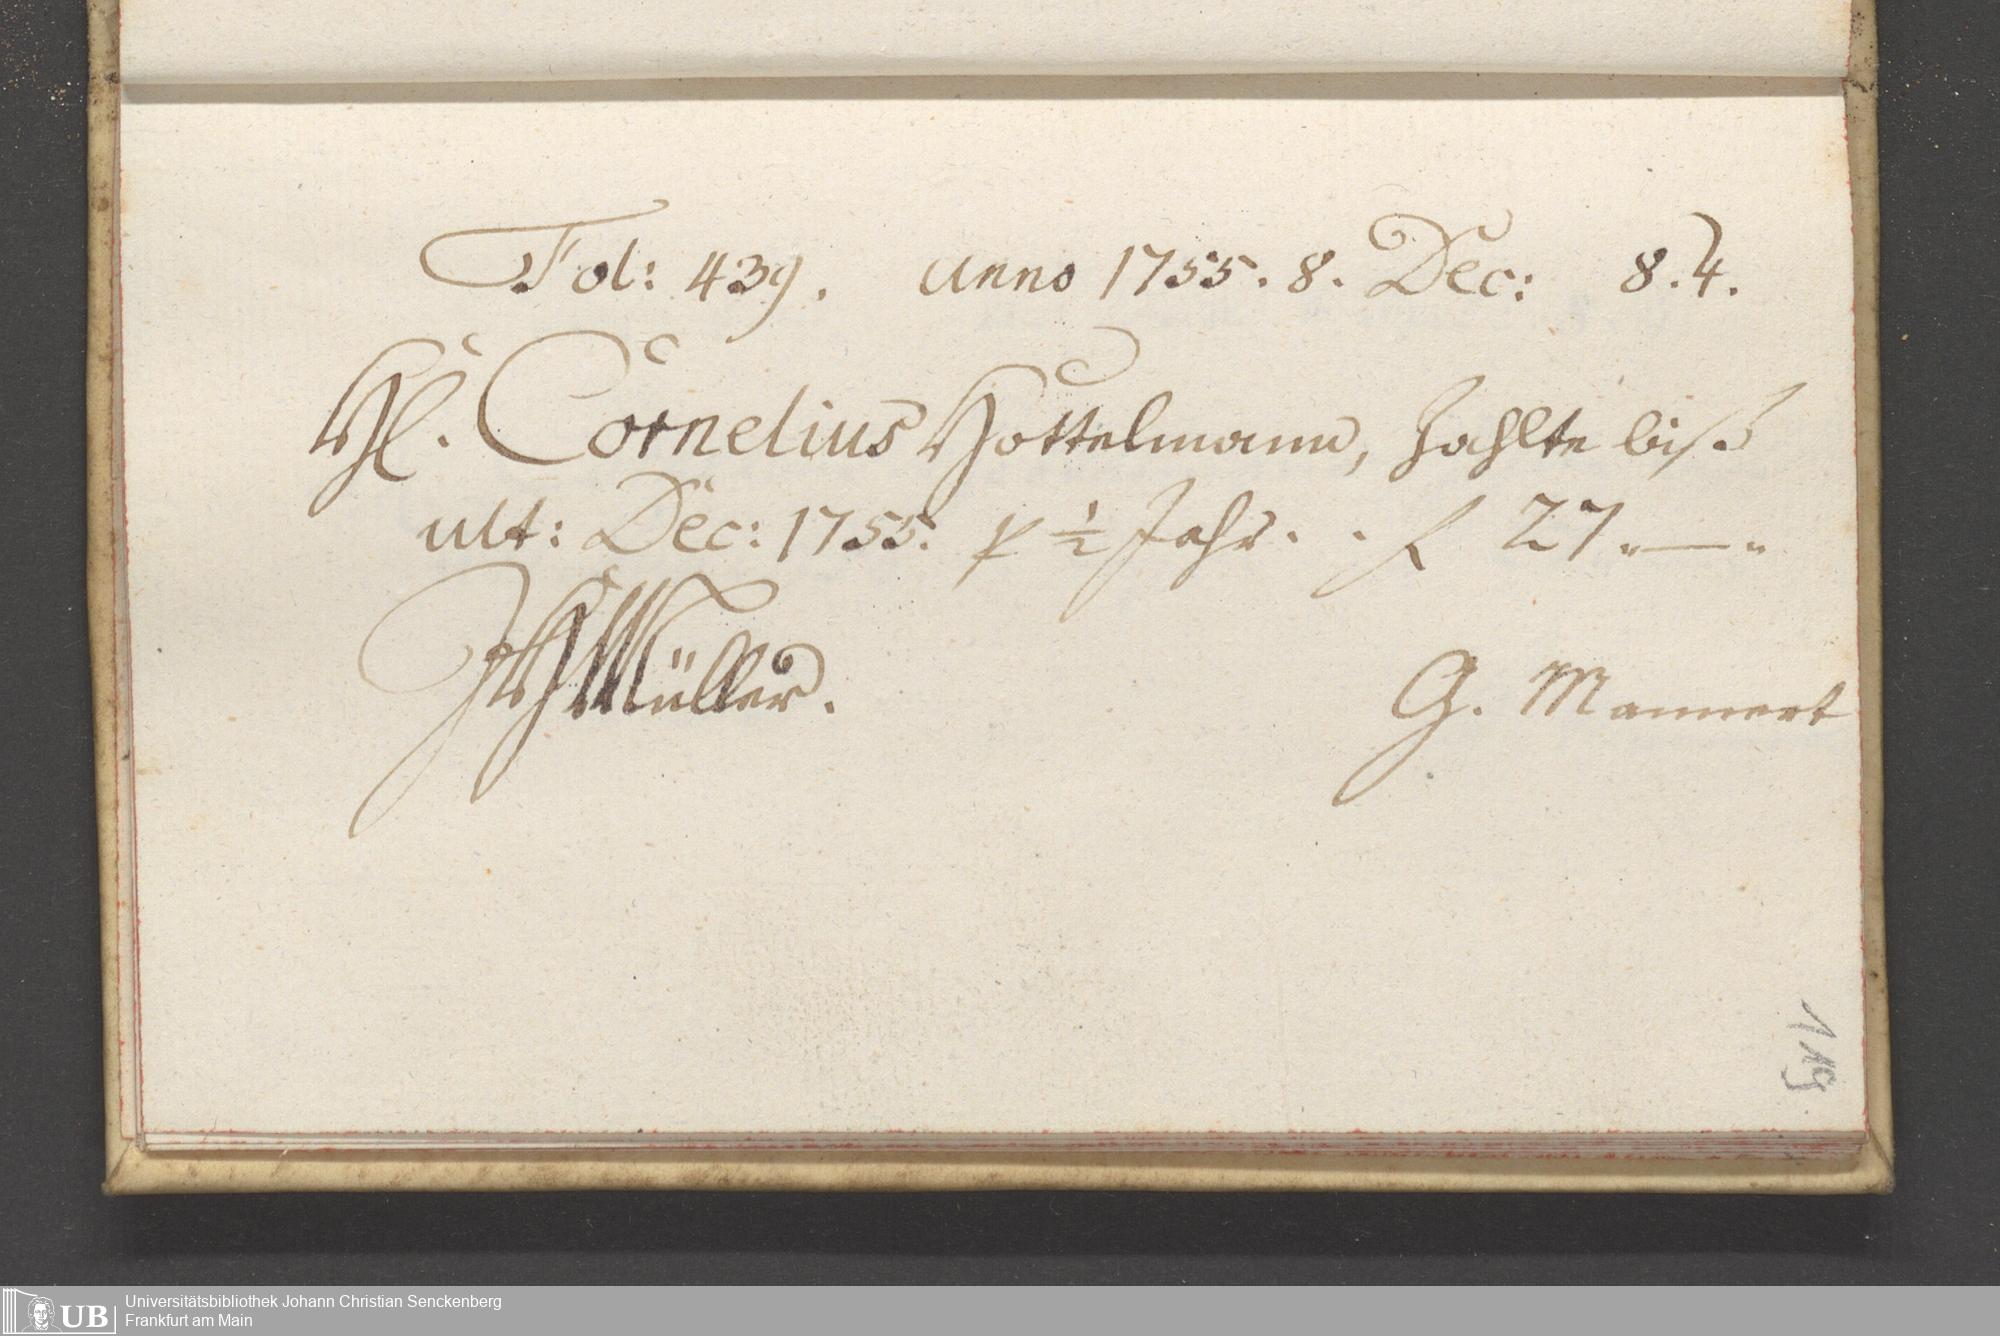 Fol: 439. Anno 1755. 8. Dec: 8.4.
Hl. Cornelius Hottelmann, zahlte biß
ult: Dec: 1755. p ½ Jahr. . f 27 „—„
JHMüller. G. Mannert
119
UB
Universitätsbibliothek Johann Christian Senckenberg
Frankfurt am Main